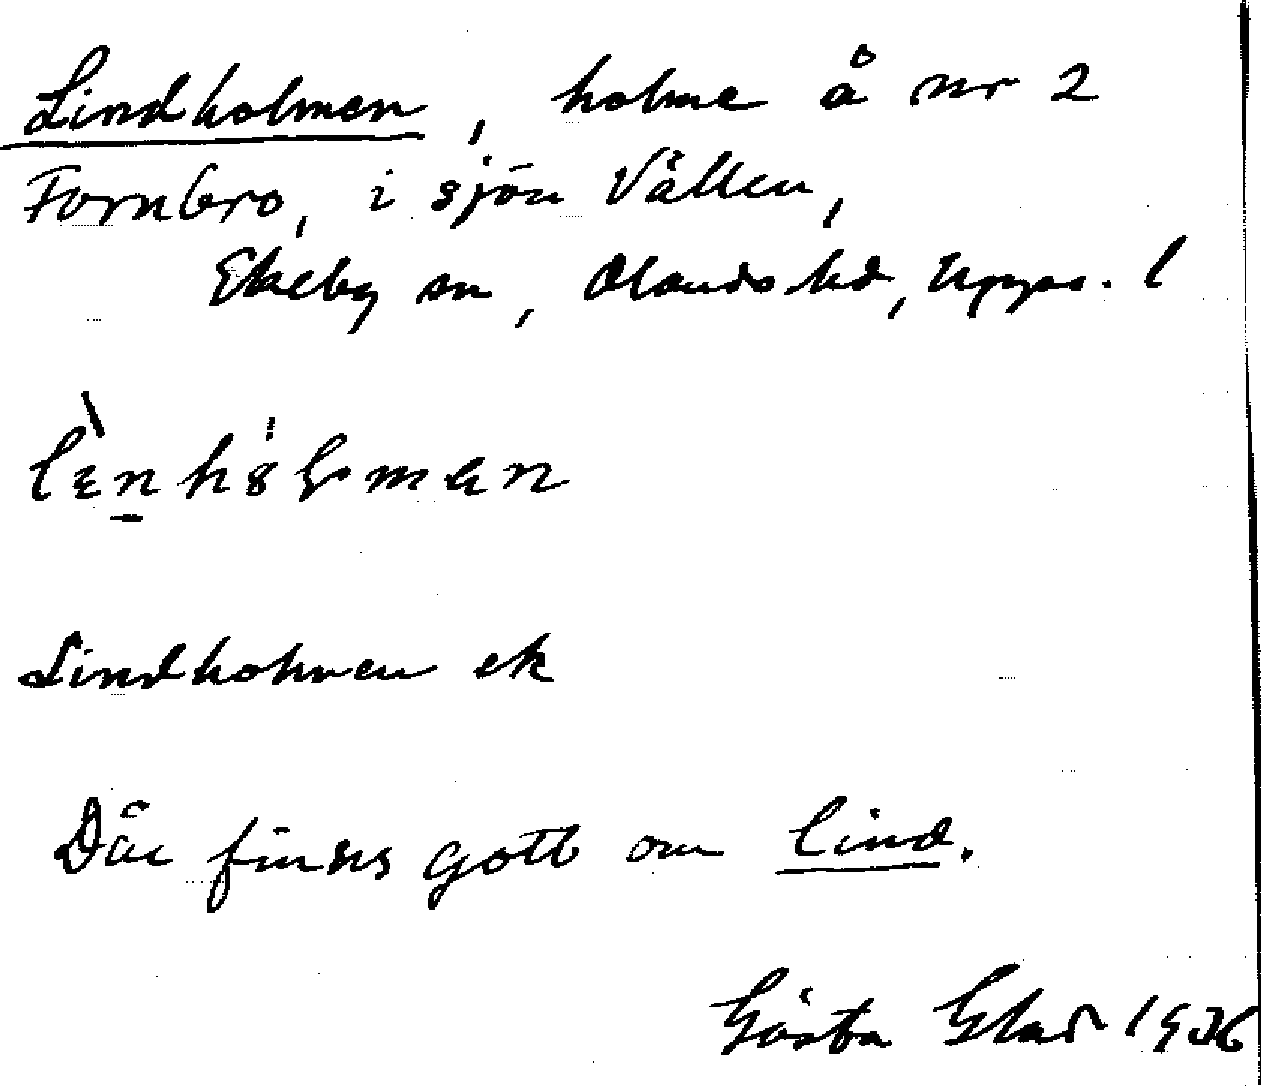 Lindholmen, holme å nr 2
Fornbro, i sjön Vällen,
Ekeby sn, Olands hd, Upps. l
Lindholmen ek
Där finns gott om lind.
Gösta Glad 1936